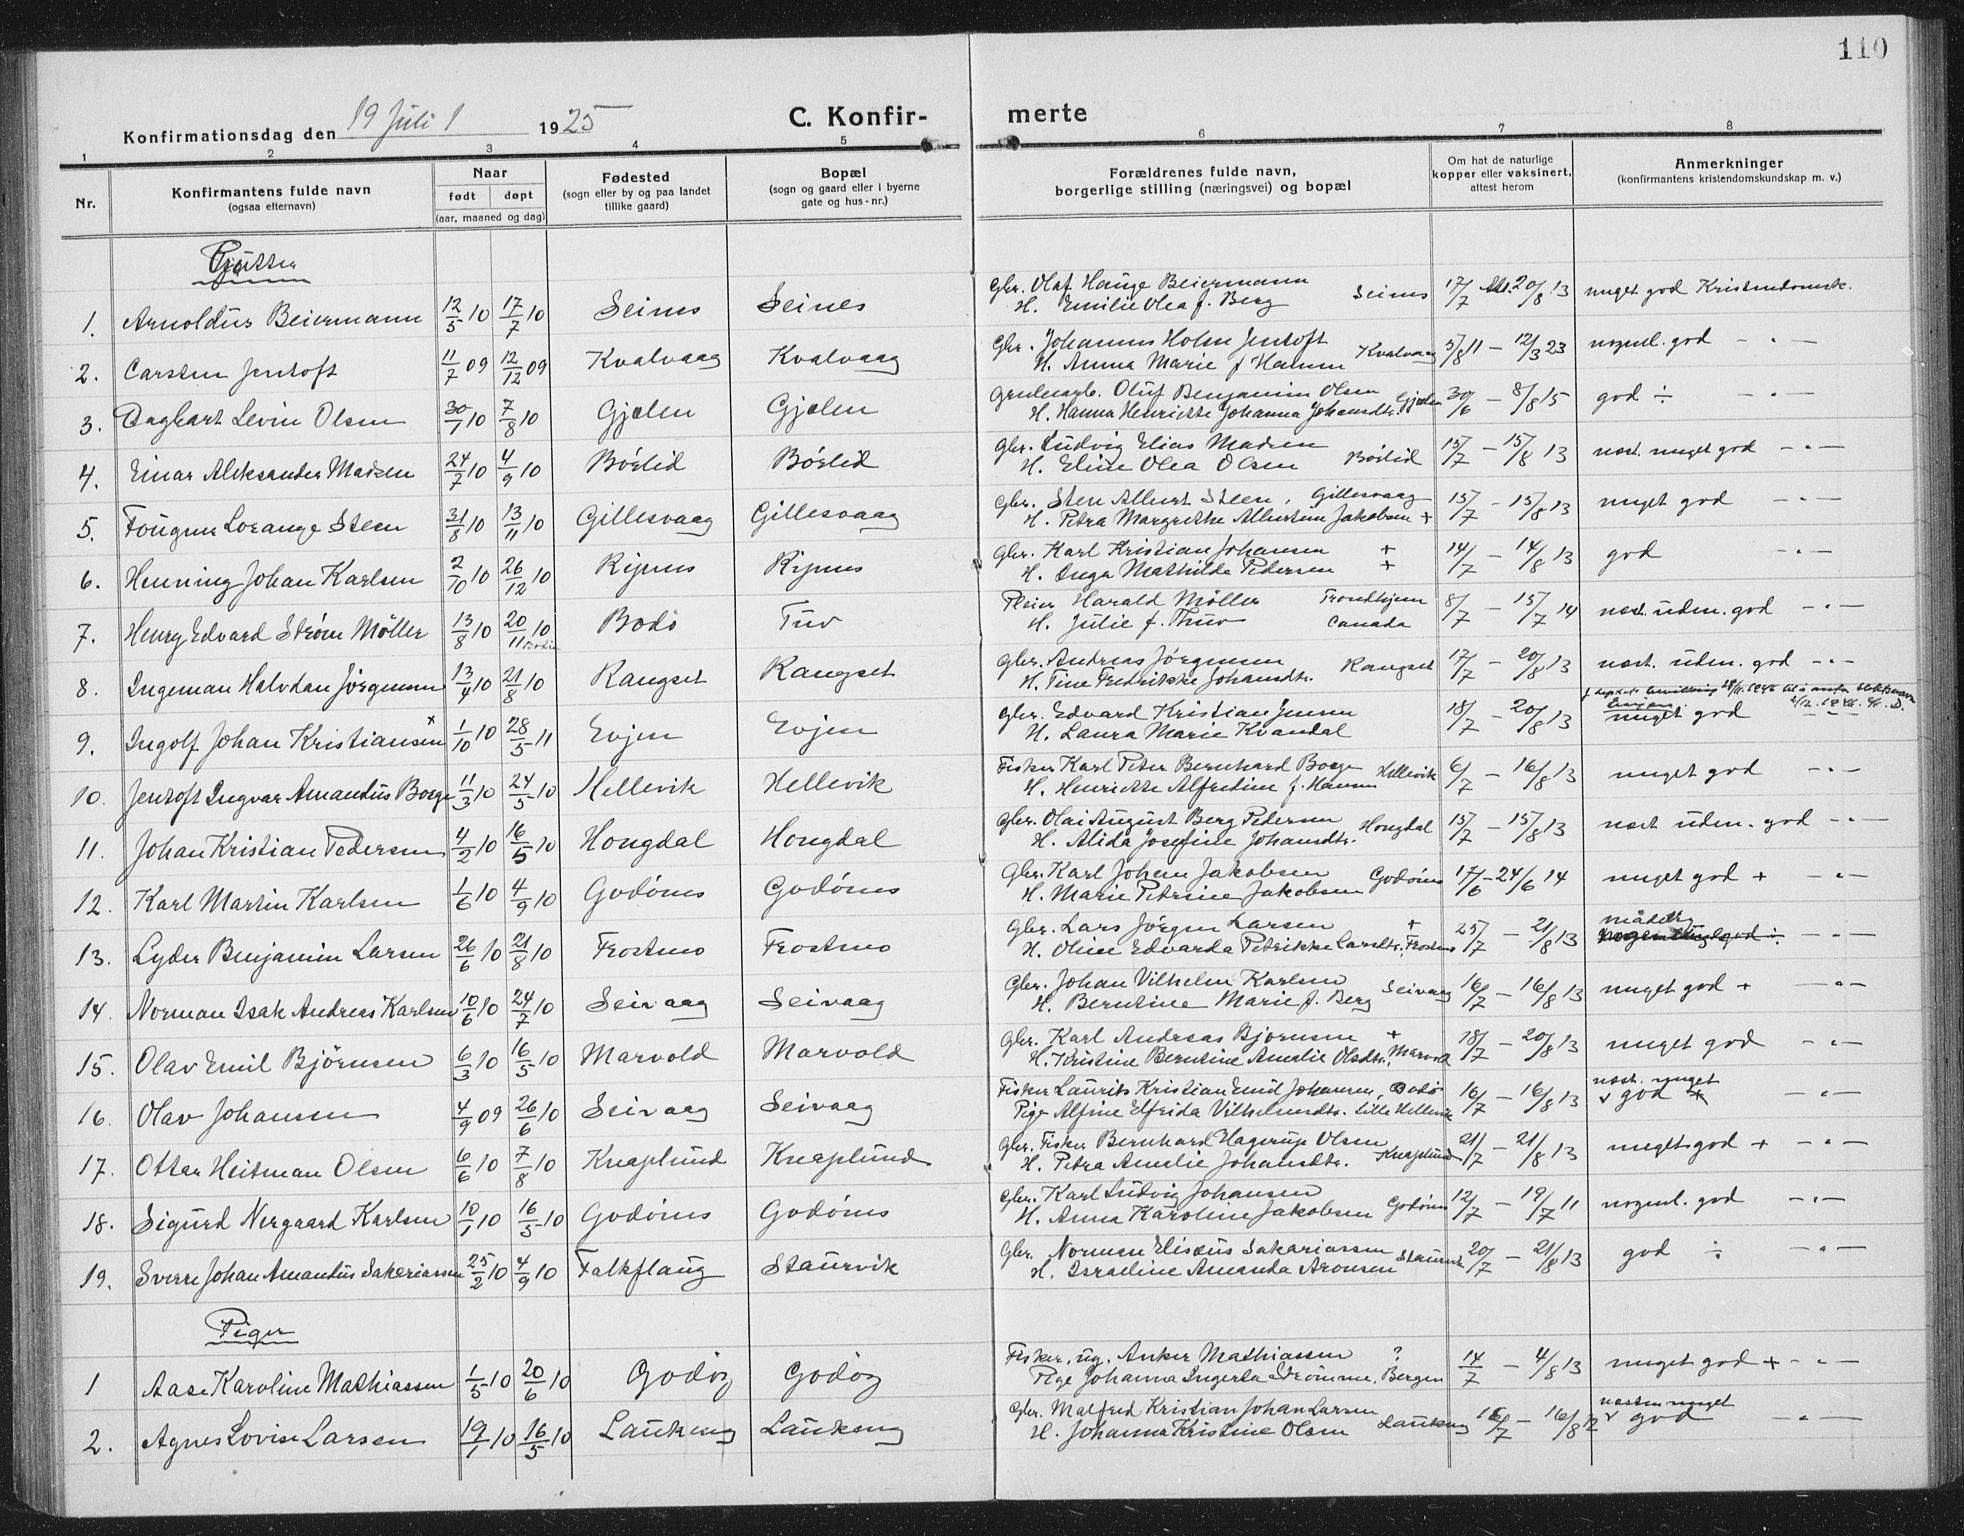 110
Konfirmationsdag den 19 Juli 1925
C. Konfirmerte
1 2 3 4 5 6 7 8
Nr.
Konfirmantens fulde navn
(ogsaa efternavn)
Naar
født døpt
(aar, maaned og dag)
Fødested
(sogn eller by og paa landet
tillike gaard)
Bopæl
(sogn og gaard eller i byerne
gate og hus-nr.)
Forældrenes fulde navn,
borgerlige stilling (næringsvei) og bopæl
Om hat de naturlige
kopper eller vaksinert,
attest herom
Anmerkninger
(konfirmantens kristendomskundskap m. v.)
Gutter
1. Arnoldus Beiermann 12/5 10 17/7 10 Seines Seines Gbr. Olaf Hauge Beiermann
H. Emilie Olea f. Berg Seines 17/7 20/8 13 meget god Kristendomsk.
2. Carsten Jentoft 11/7 09 12/12 09 Kvalvaag Kvalvaag Gbr. Johannes Holm Jentoft
H. Anna Marie f Hamm Kvalvaag 5/8 11 – 12/3 23 nogenl. god – " –
3. Daghart Levin Olsen 30/1 10 7/8 10 Gjælen Gjælen Oluf Benjamin Olsen
H. Hanna Henriette Johanna Johansdtr. Gjælen 30/6 – 8/8 15 god ÷ – " –
4. Einar Aleksander Madsen 24/7 10 4/9 10 Börlid Börlid Gbr. Ludvig Elias Madsen
H. Eline Olea Olsen Börlid 15/7 – 15/8 13 næst. meget god – " –
5. Fougner Lorange Steen 31/8 10 13/11 10 Gillesvaag Gillesvaag Gbr. Sten Albert Steen, Gillesvaag
H. Petra Margrethe Albertine Jakobsen + 15/7 – 15/8 13 meget god – " –
6. Henning Johan Karlsen 2/10 10 26/12 10 Ripnes Ripnes Gbr. Karl Kristian Johansen +
H. Inga Mathilde Pedersen + 14/7 – 14/8 13 god – " –
7. Henry Edvard Strøm Møller 13/8 10 20/11 10 Bodin Bodö Tuv Pleier Harald Møller Trondhjem
H. Julie f. Thuv Canada 8/7 – 15/7 14 næst. uden. god – " –
8. Ingeman Halvdan Jörgensen 13/4 10 21/8 10 Rangset Rangset Gbr. Andreas Jørgensen
H. Tine Fredrikke Johansdtr. Rangset 17/7 – 20/8 13 næst. uden. god – " –
9. Ingolf Johan Kristiansen x 1/10 10 28/5 11 Evjen Evjen Gbr. Edvard Kristian Jensen
H. Laura Marie Kvandal 18/7 – 20/8 13 Evjen meget god – " –
10. Jentoft Ingvar Amandus Boege 11/3 10 24/5 10 Hellevik Hellevik Fisker Karl Peter Bernhard Boege
H. Henriette Alfredine f. Hansen Hellevik 6/7 – 16/8 13 meget god – " –
11. Johan Kristian Pedersen 4/2 10 16/5 10 Hongdal Hongdal Gbr. Olai August Berg Pedersen
H. Alida Josefine Johansdtr. Hongdal 15/7 – 15/8 13 næst. uden. god – " –
12. Karl Martin Karlsen 1/6 10 4/9 10 Godönes Godönes Gbr. Karl Johan Jakobsen
H. Marie Petrine Jakobsen Godönes 17/6 – 24/6 14 meget god + – " –
13. Lyder Benjamin Larsen 26/6 10 21/8 10 Frostmo Frostmo Gbr. Lars Jörgen Larsen +
H. Oline Edvarda Petrikke Larsdtr. Frostmo 25/7 – 21/8 13 måtelig – " –
14. Norman Isak Andreas Karlsen 10/6 10 24/7 10 Seivaag Seivaag Gbr. Johan Vilhelm Karlsen
H. Berntine Marie f. Berg Seivaag 16/7 – 16/8 13 meget god + – " –
15. Olav Emil Björnsen 6/3 10 16/5 10 Marvold Marvold Gbr. Karl Andreas Bjørnsen +
H. Kristine Berntine Amalie Olsdtr. Marvold 18/7 – 20/8 13 meget god – " –
16. Olav Johansen 4/9 09 26/6 10 Seivaag Seivaag Fisker Laurits Kristian Emil Johansen, Bodö
Pige Alfine Elfrida Vilhelmsdtr. Lille Hellevik 16/7 – 16/8 13 næst. meget
god – " –
17. Ottar Heitman Olsen 6/6 10 7/8 10 Knaplund Knaplund Gbr. Fisker Bernhard Hagerup Olsen
H. Petra Amalie Johansdtr. Knaplund 21/7 – 21/8 13 meget god + – " –
18. Sigurd Nergaard Karlsen 10/1 10 16/5 10 Godönes Godönes Gbr. Karl Ludvig Johansen
H. Anna Karoline Jakobsen Godönes 12/7 – 19/7 11 nogenl. god – " –
19. Sverre Johan Amandus Sakariassen 25/2 10 4/9 10 Falkflaug Staurvik Gbr. Norman Elisæus Sakariassen
H. Israeline Amanda Aronsen Staurvik 20/7 – 21/8 13 god ÷ – " –
Piger
1 Aase Karoline Mathiassen 1/5 10 20/6 10 Godöy Godöy Fisker, ug. Anker Mathiassen ?
Pige Johanna Ingerta Strömme, Bergen 14/7 – 4/8 13 meget god + – " –
2. Agnes Lovise Larsen 19/1 10 16/5 10 Laukeng Laukeng Gbr. Malfred Kristian Johan Larsen
H. Johanna Kristine Olsen Laukeng 16/7 – 16/8 12 næsten meget
god – " –